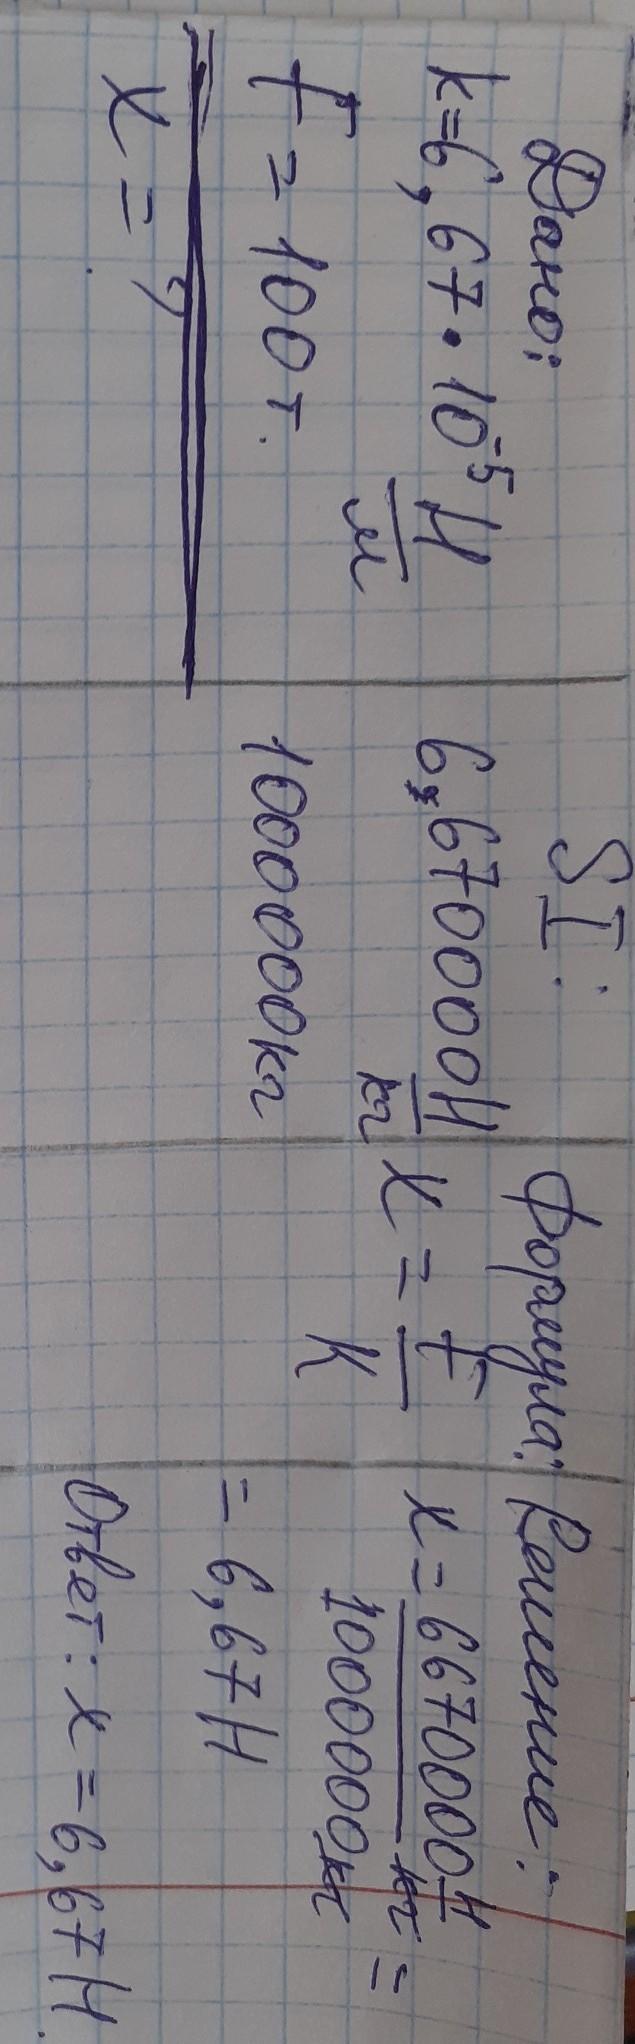 Дано:
k=6,67·10⁻⁵ Н/м
F = 100 т.
x = ?
SI:
6,670000 Н/кг
1000000кг
Формула:
x = F/K
Решение:
x = 6670000 Н/кг / 1000000кг =
= 6,67Н
Ответ: x = 6,67Н.